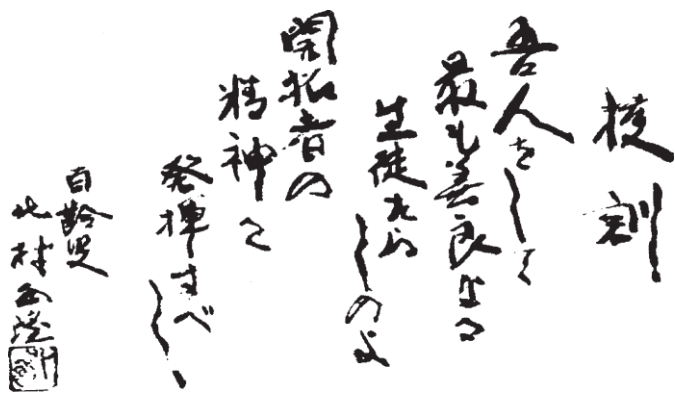 校訓
吾人をして
最も善良なる
生徒たらしめよ
開拓者の
精神を
発揮すべし
百齢児
北村西望